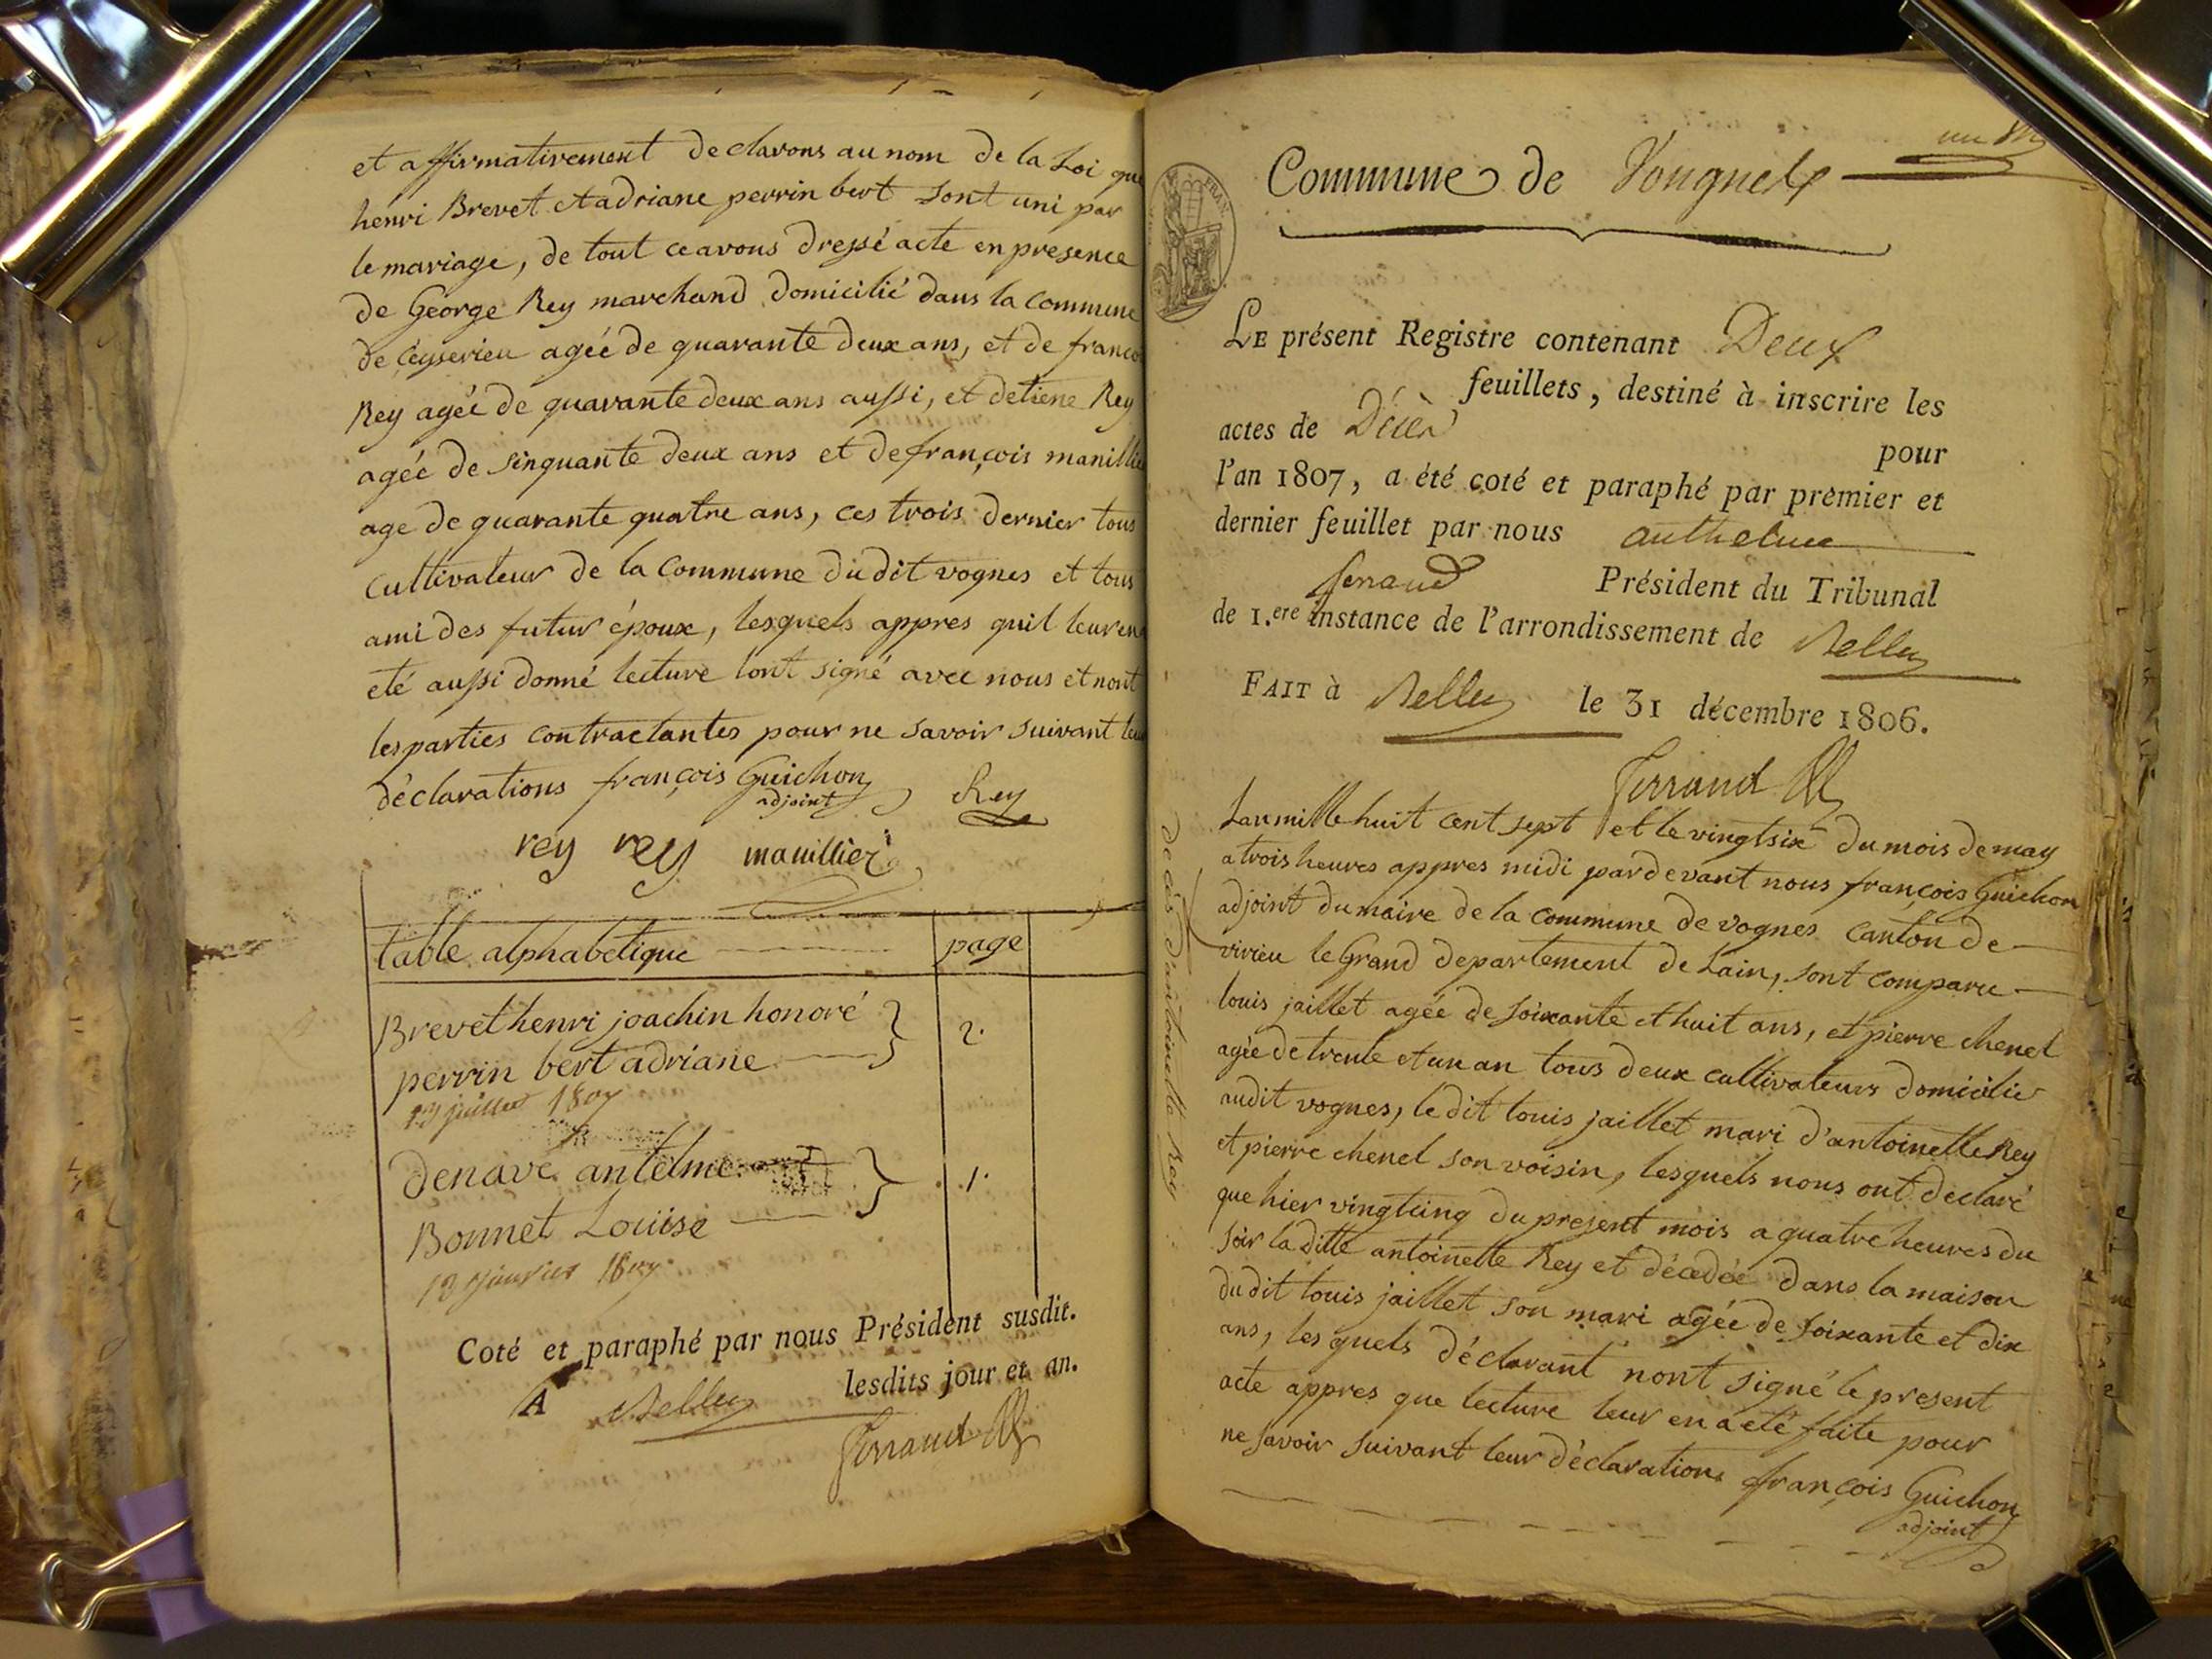 et affirmativement declarons au nom de la Loi que
henri Brevet et adriane perrin bert sont uni par
le mariage, de tout ce avons dressé acte en presence
de George Rey marchand domicilié dans la commune
de Ceyserieu agée de quarante deux ans, et de franco
Rey agée de quarante deux ans aussi, et detiene Rey
agée de sinquante deux ans et de françois manillie
age de quarante quatre ans, ces trois dernier tous
cultivateur de la Commune du dit vognes et tous
ami des futur époux, lesquels appres quil leur en
eté aussi donné lecture lont signé avec nous et nont
les parties contractantes pour ne savoir suivant leu
déclarations françois Guichon
adjoint
Rey
rey rey manillier
table alphabetique page
Brevet henri joachin honoré
perrin bert adriane 2.
13 juillet 1807
Denave antelme
Bonnet Louise 1.
13 janvier 1807
Coté et paraphé par nous Président susdit.
A Belley lesdits jour et an.
Ferrand
Commune de Vongnes
LE présent Registre contenant Deux
feuillets, destiné à inscrire les
actes de Décès
pour
l'an 1807, a été coté et paraphé par premier et
dernier feuillet par nous anthelme
ferrand Président du Tribunal
de 1.ere instance de l'arrondissement de Belley
FAIT à Belley le 31 décembre 1806.
Ferrand
Lan mille huit cent sept et le vingt six du mois de may
a trois heures appres midi pardevant nous françois Guichon
adjoint du maire de la commune de vognes canton de
virieu le Grand departement de Lain, sont comparu
louis jaillet agée de soixante et huit ans, et pierre chenel
agée de trente et un an tous deux cultivateurs domicilier
audit vognes, le dit louis jaillet mari d'antoinette Rey
et pierre chenel son voisin, lesquels nous ont declaré
que hier vingt cinq du present mois a quatre heures du
soir la ditte antoinette Rey et décedée dans la maison
du dit louis jaillet son mari agée de soixante et dix
ans, les quels déclarant nont signé le present
acte appres que lecture leur en a eté faite pour
ne savoir suivant leur déclarations françois Guichon
adjoint
décès d'antoinette Rey